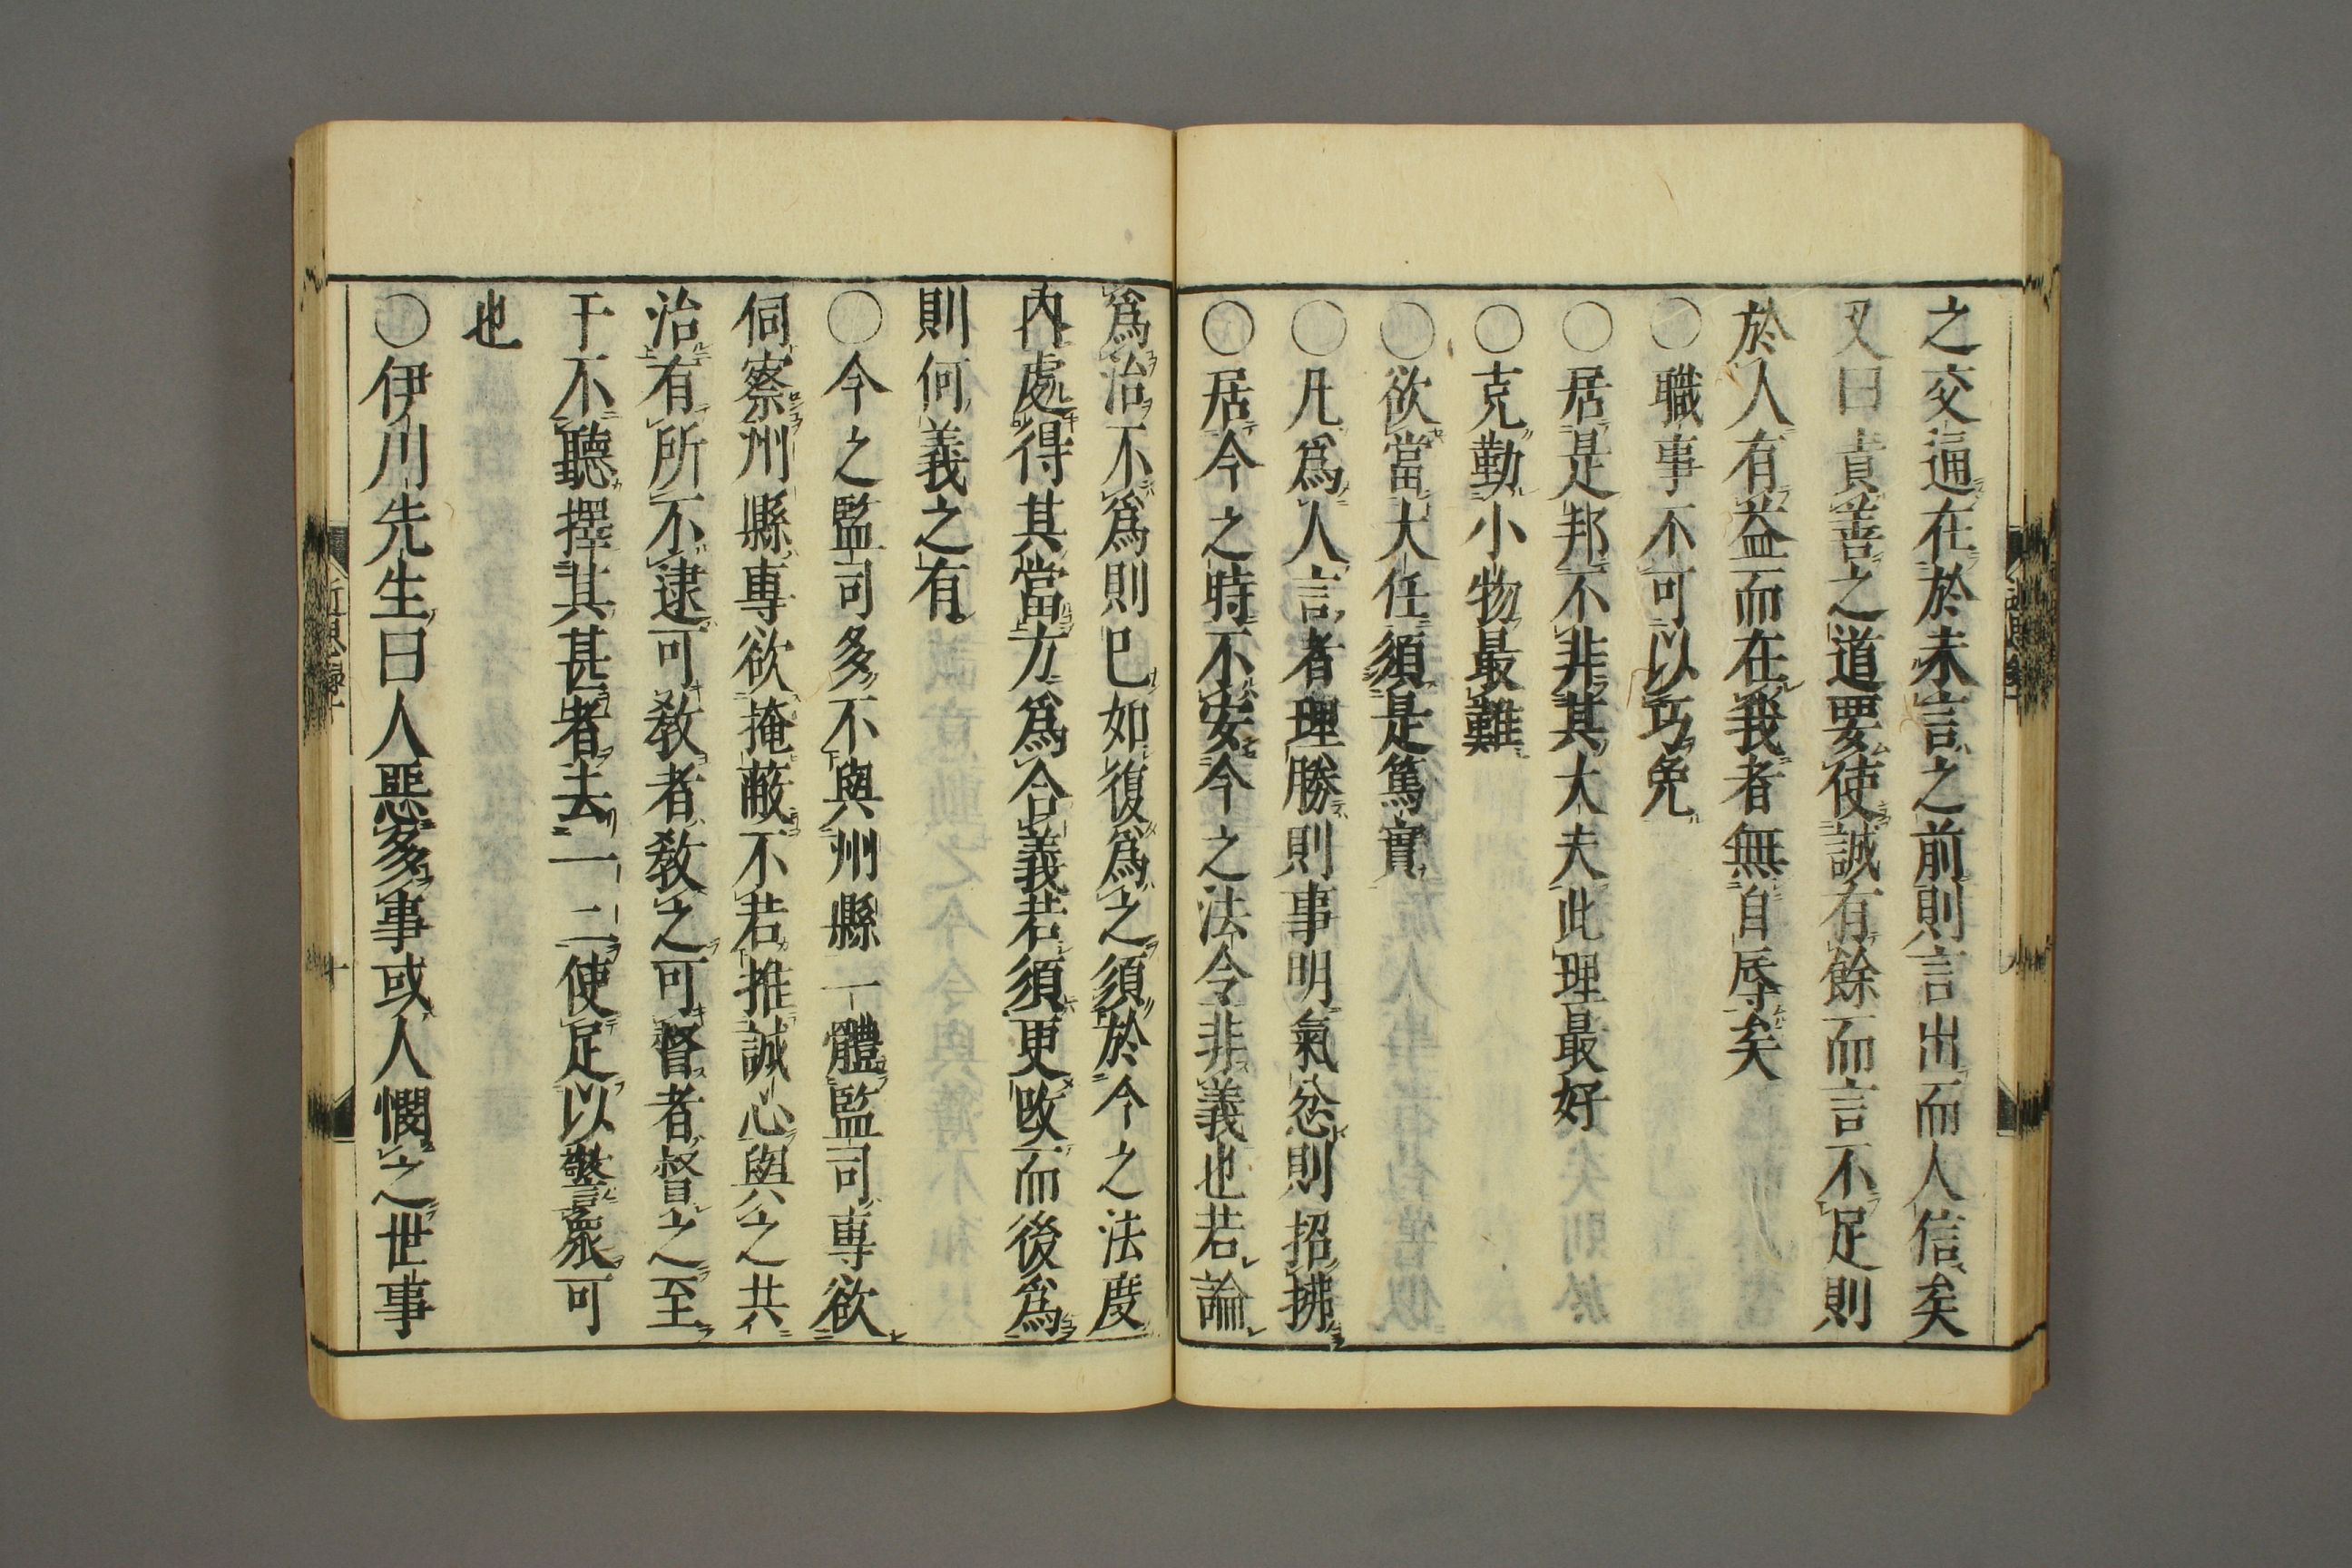 之交通在於未言之前則言出而人信矣
又曰責善之道要使誠有餘而言不足則
於人有益而在我者無自辱矣
〇職事不可以巧免
〇居是邦不非其大夫此理最好
〇克勤小物最難
〇欲當大任須是篤實
〇凡爲人言者理勝則事明氣忿則招拂
〇居今之時不安今之法令非義也若論
爲治不爲則已如復爲之須於今之法度
内處得其當方爲合義若須更改而後爲
則何義之有
〇今之監司多不與州縣一體監司專欲
伺察州縣專欲掩蔽不若推誠心與之共
治有所不逮可教者教之可督者督之至
于不聽擇其甚者去一二使足以警衆可
也
〇伊川先生曰人惡多事或人憫之世事